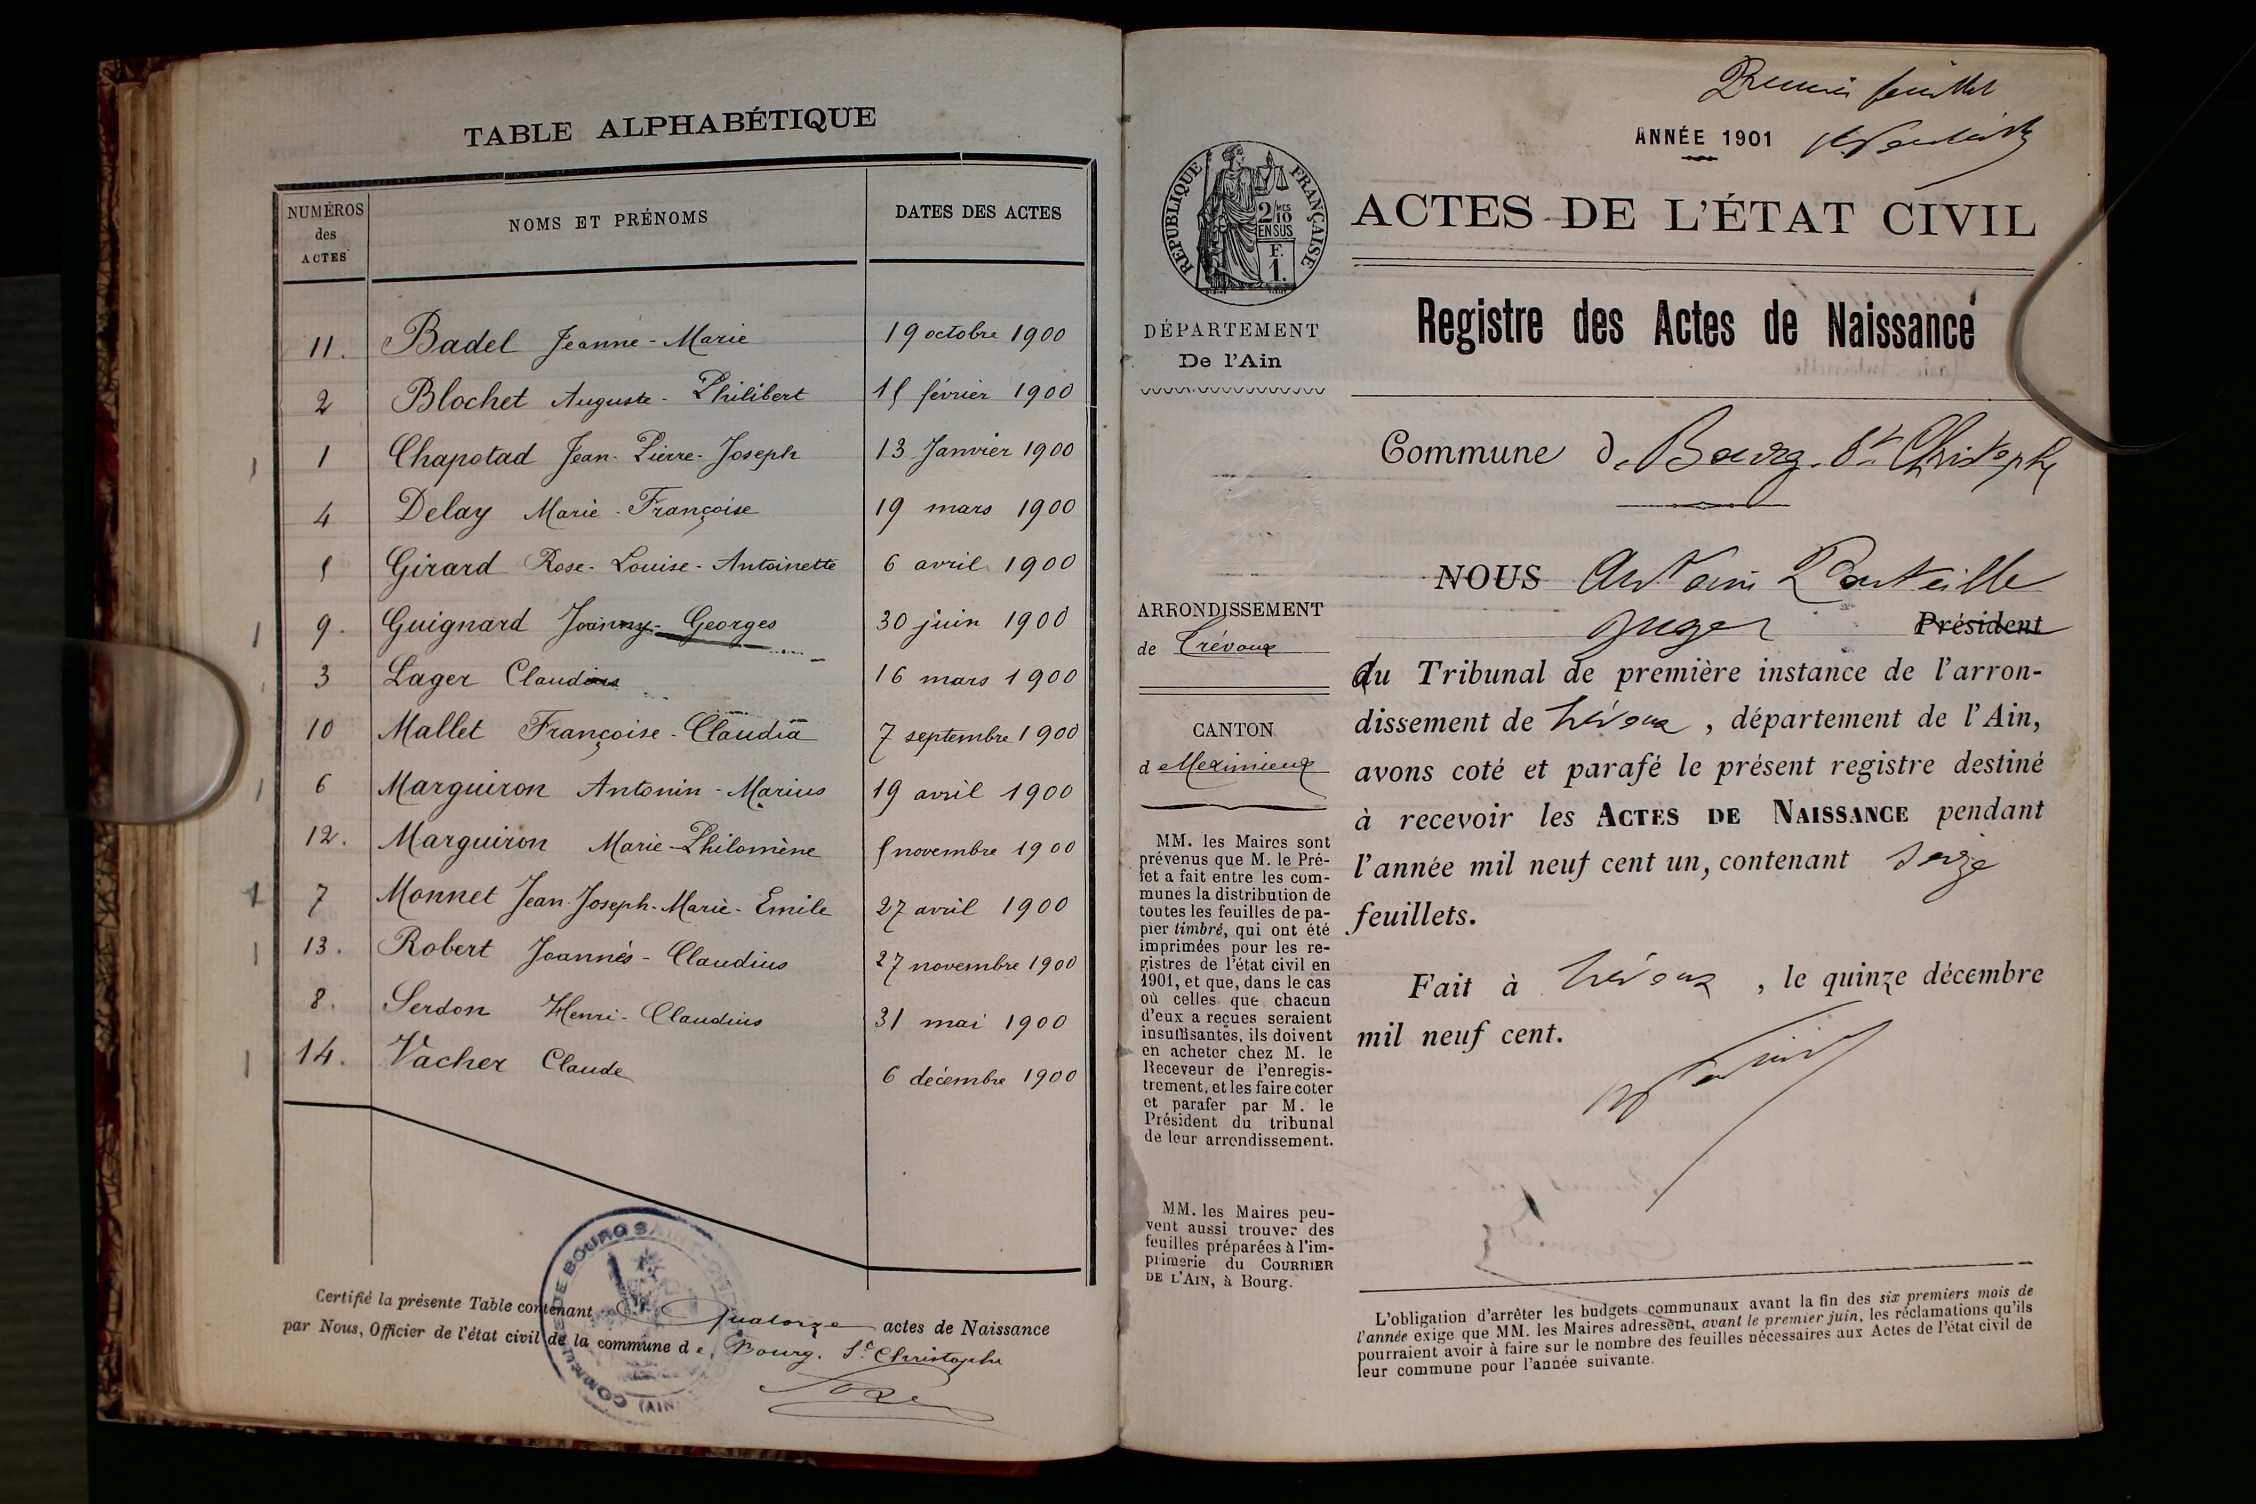 TABLE ALPHABÉTIQUE
NUMÉROS des ACTES NOMS ET PRÉNOMS DATES DES ACTES
11. Badel Jeanne-Marie 19 octobre 1900
2 Blochet Auguste-Philibert 15 février 1900
1 Chapotad Jean-Pierre-Joseph 13 Janvier 1900
4 Delay Marie-Françoise 19 mars 1900
5 Girard Rose-Louise-Antoinette 6 avril 1900
9. Guignard Joanny-Georges 30 juin 1900
3 Lager Claudius 16 mars 1900
10 Mallet Françoise-Claudia 7 septembre 1900
6 Marguiron Antonin-Marius 19 avril 1900
12. Marguiron Marie-Philomène 5 novembre 1900
7 Monnet Jean-Joseph-Marie-Emile 27 avril 1900
13. Robert Joannès-Claudius 27 novembre 1900
8. Serdon Henri-Claudius 31 mai 1900
14. Vacher Claude 6 décembre 1900
Certifié la présente Table contenant quatorze actes de Naissance
par Nous, Officier de l'état civil de la commune de Bourg. St Christophe
Premier feuillet
ANNÉE 1901
RÉPUBLIQUE FRANÇAISE
2/10 MES
EN SUS
F.
1.
ACTES DE L'ÉTAT CIVIL
Registre des Actes de Naissance
DÉPARTEMENT
De l'Ain
Commune de Bourg. St Christophe
ARRONDISSEMENT
de Trévoux
CANTON
de Meximieux
MM. les Maires sont
prévenus que M. le Pré-
fet a fait entre les com-
munes la distribution de
toutes les feuilles de pa-
pier timbré, qui ont été
imprimées pour les re-
gistres de l'état civil en
1901, et que, dans le cas
où celles que chacun
d'eux a reçues seraient
insuffisantes, ils doivent
en acheter chez M. le
Receveur de l'enregis-
trement, et les faire coter
et parafer par M. le
Président du tribunal
de leur arrondissement.
MM. les Maires peu-
vent aussi trouver des
feuilles préparées à l'im-
primerie du COURRIER
DE L'AIN, à Bourg.
NOUS Antoine Porteille
Juge Président
du Tribunal de première instance de l'arron-
dissement de Trévoux, département de l'Ain,
avons coté et parafé le présent registre destiné
à recevoir les ACTES DE NAISSANCE pendant
l'année mil neuf cent un, contenant seize
feuillets.
Fait à Trévoux, le quinze décembre
mil neuf cent.
L'obligation d'arrêter les budgets communaux avant la fin des six premiers mois de
l'année exige que MM. les Maires adressent, avant le premier juin, les réclamations qu'ils
pourraient avoir à faire sur le nombre des feuilles nécessaires aux Actes de l'état civil de
leur commune pour l'année suivante.